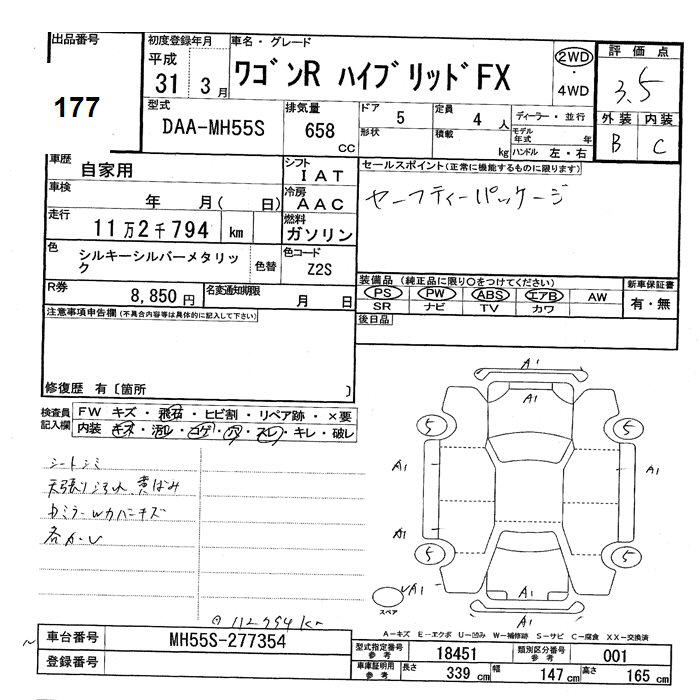 出品番号
177
初度登録年月
平成
31 3月
車名・グレード
ワゴンR ハイブリッドFX
2WD
・
4WD
評価点
3.5
外装 内装
B C
型式
DAA-MH55S
排気量
658
CC
ドア
5
形状
定員
4 人
積載
kg
ディーラー・並行
モデル年式 年
ハンドル 左・右
車歴
自家用
シフト
IAT
車検
年 月( 日)
冷房
AAC
走行
11万2千794 km
燃料
ガソリン
色
シルキーシルバーメタリック
色替
色コード
Z2S
R券
8,850円
名変通知期限
月 日
セールスポイント(正常に機能するものに限ります)
セーフティーパッケージ
装備品(純正品に限り○をつけてください)
PS PW ABS エアB AW
SR ナビ TV カワ
新車保証書
有・無
後日品
注意事項申告欄(不具合内容等は具体的に記入して下さい)
修復歴 有〔箇所 〕
検査員記入欄
FW キズ・飛石・ヒビ割・リペア跡・×要
内装 キズ・汚レ・コゲ・穴・スレ・キレ・破レ
シートシミ
天張りヨゴレ、黄ばみ
カミラーwカバーキズ
各かし
112794km
A1
A1
5 5
A1 A1
A1
5 5
A1
A1
A1
スペア
A-キズ E-エクボ U-凹み W-補修跡 S-サビ C-腐食 XX-交換済
車台番号
MH55S-277354
登録番号
型式指定番号参考
18451
類別区分番号参考
001
車庫証明用参考
長さ 339 cm
幅 147 cm
高さ 165 cm